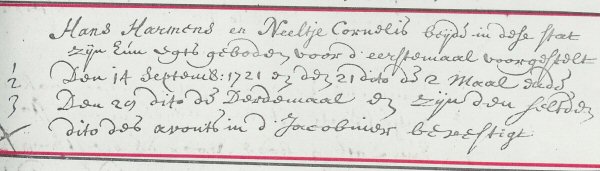 Hans Harmens en Neeltje Cornelis beÿds in dese stat
zijn hún egts geboden voor d' eerstemaal voorgestelt
1 Den 14 Septemb: 1721 en den 21 dito ds 2 Maal
2
3 Den 29 dito ds Derdemaal en zijn den selvden
dito des avonts in d' Jacobiner bevestigt